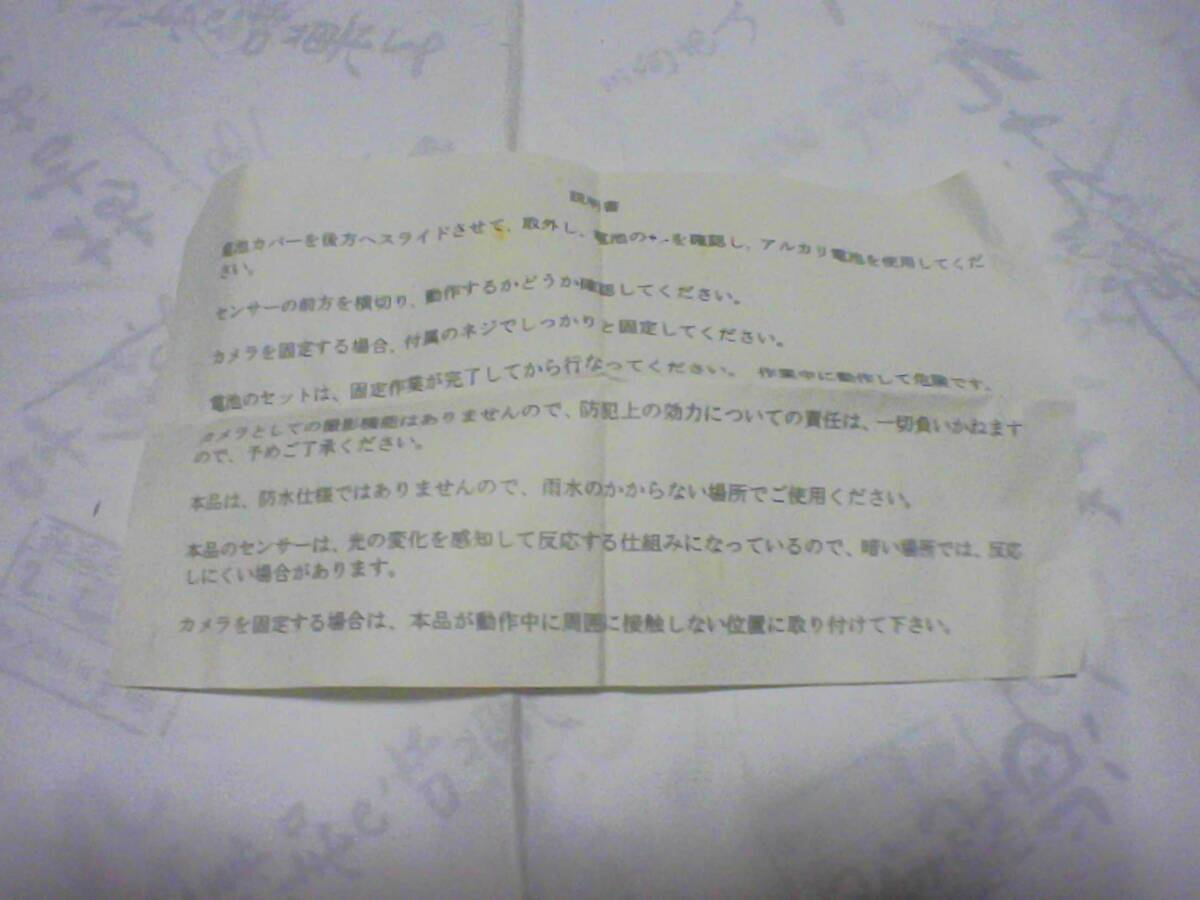 説明書
電池カバーを後方へスライドさせて、取外し、電池の+-を確認し、アルカリ電池を使用してくだ
さい。
センサーの前方を横切り、動作するかどうか確認してください。
カメラを固定する場合、付属のネジでしっかりと固定してください。
電池のセットは、固定作業が完了してから行なってください。 作業中に動作して危険です。
カメラとしての撮影機能はありませんので、防犯上の効力についての責任は、一切負いかねます
ので、予めご了承ください。
本品は、防水仕様ではありませんので、雨水のかからない場所でご使用ください。
本品のセンサーは、光の変化を感知して反応する仕組みになっているので、暗い場所では、反応
しにくい場合があります。
カメラを固定する場合は、本品が動作中に周囲に接触しない位置に取り付けて下さい。